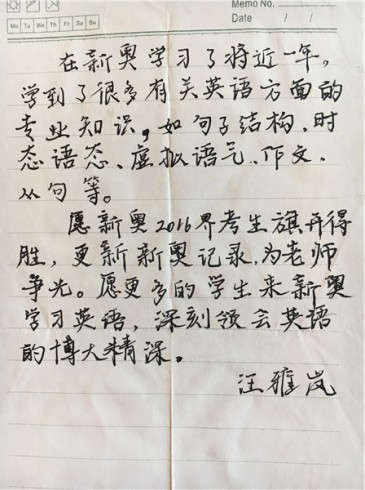 Memo No.
Mo Tu We Th Fr Sa Su
Date / /
在新奥学习了将近一年，
学到了很多有关英语方面的
专业知识，如句子结构、时
态语态、虚拟语气、作文、
从句等。
愿新奥2016界考生旗开得
胜，更新新奥记录，为老师
争光。愿更多的学生来新奥
学习英语，深刻领会英语
的博大精深。
汪雅岚